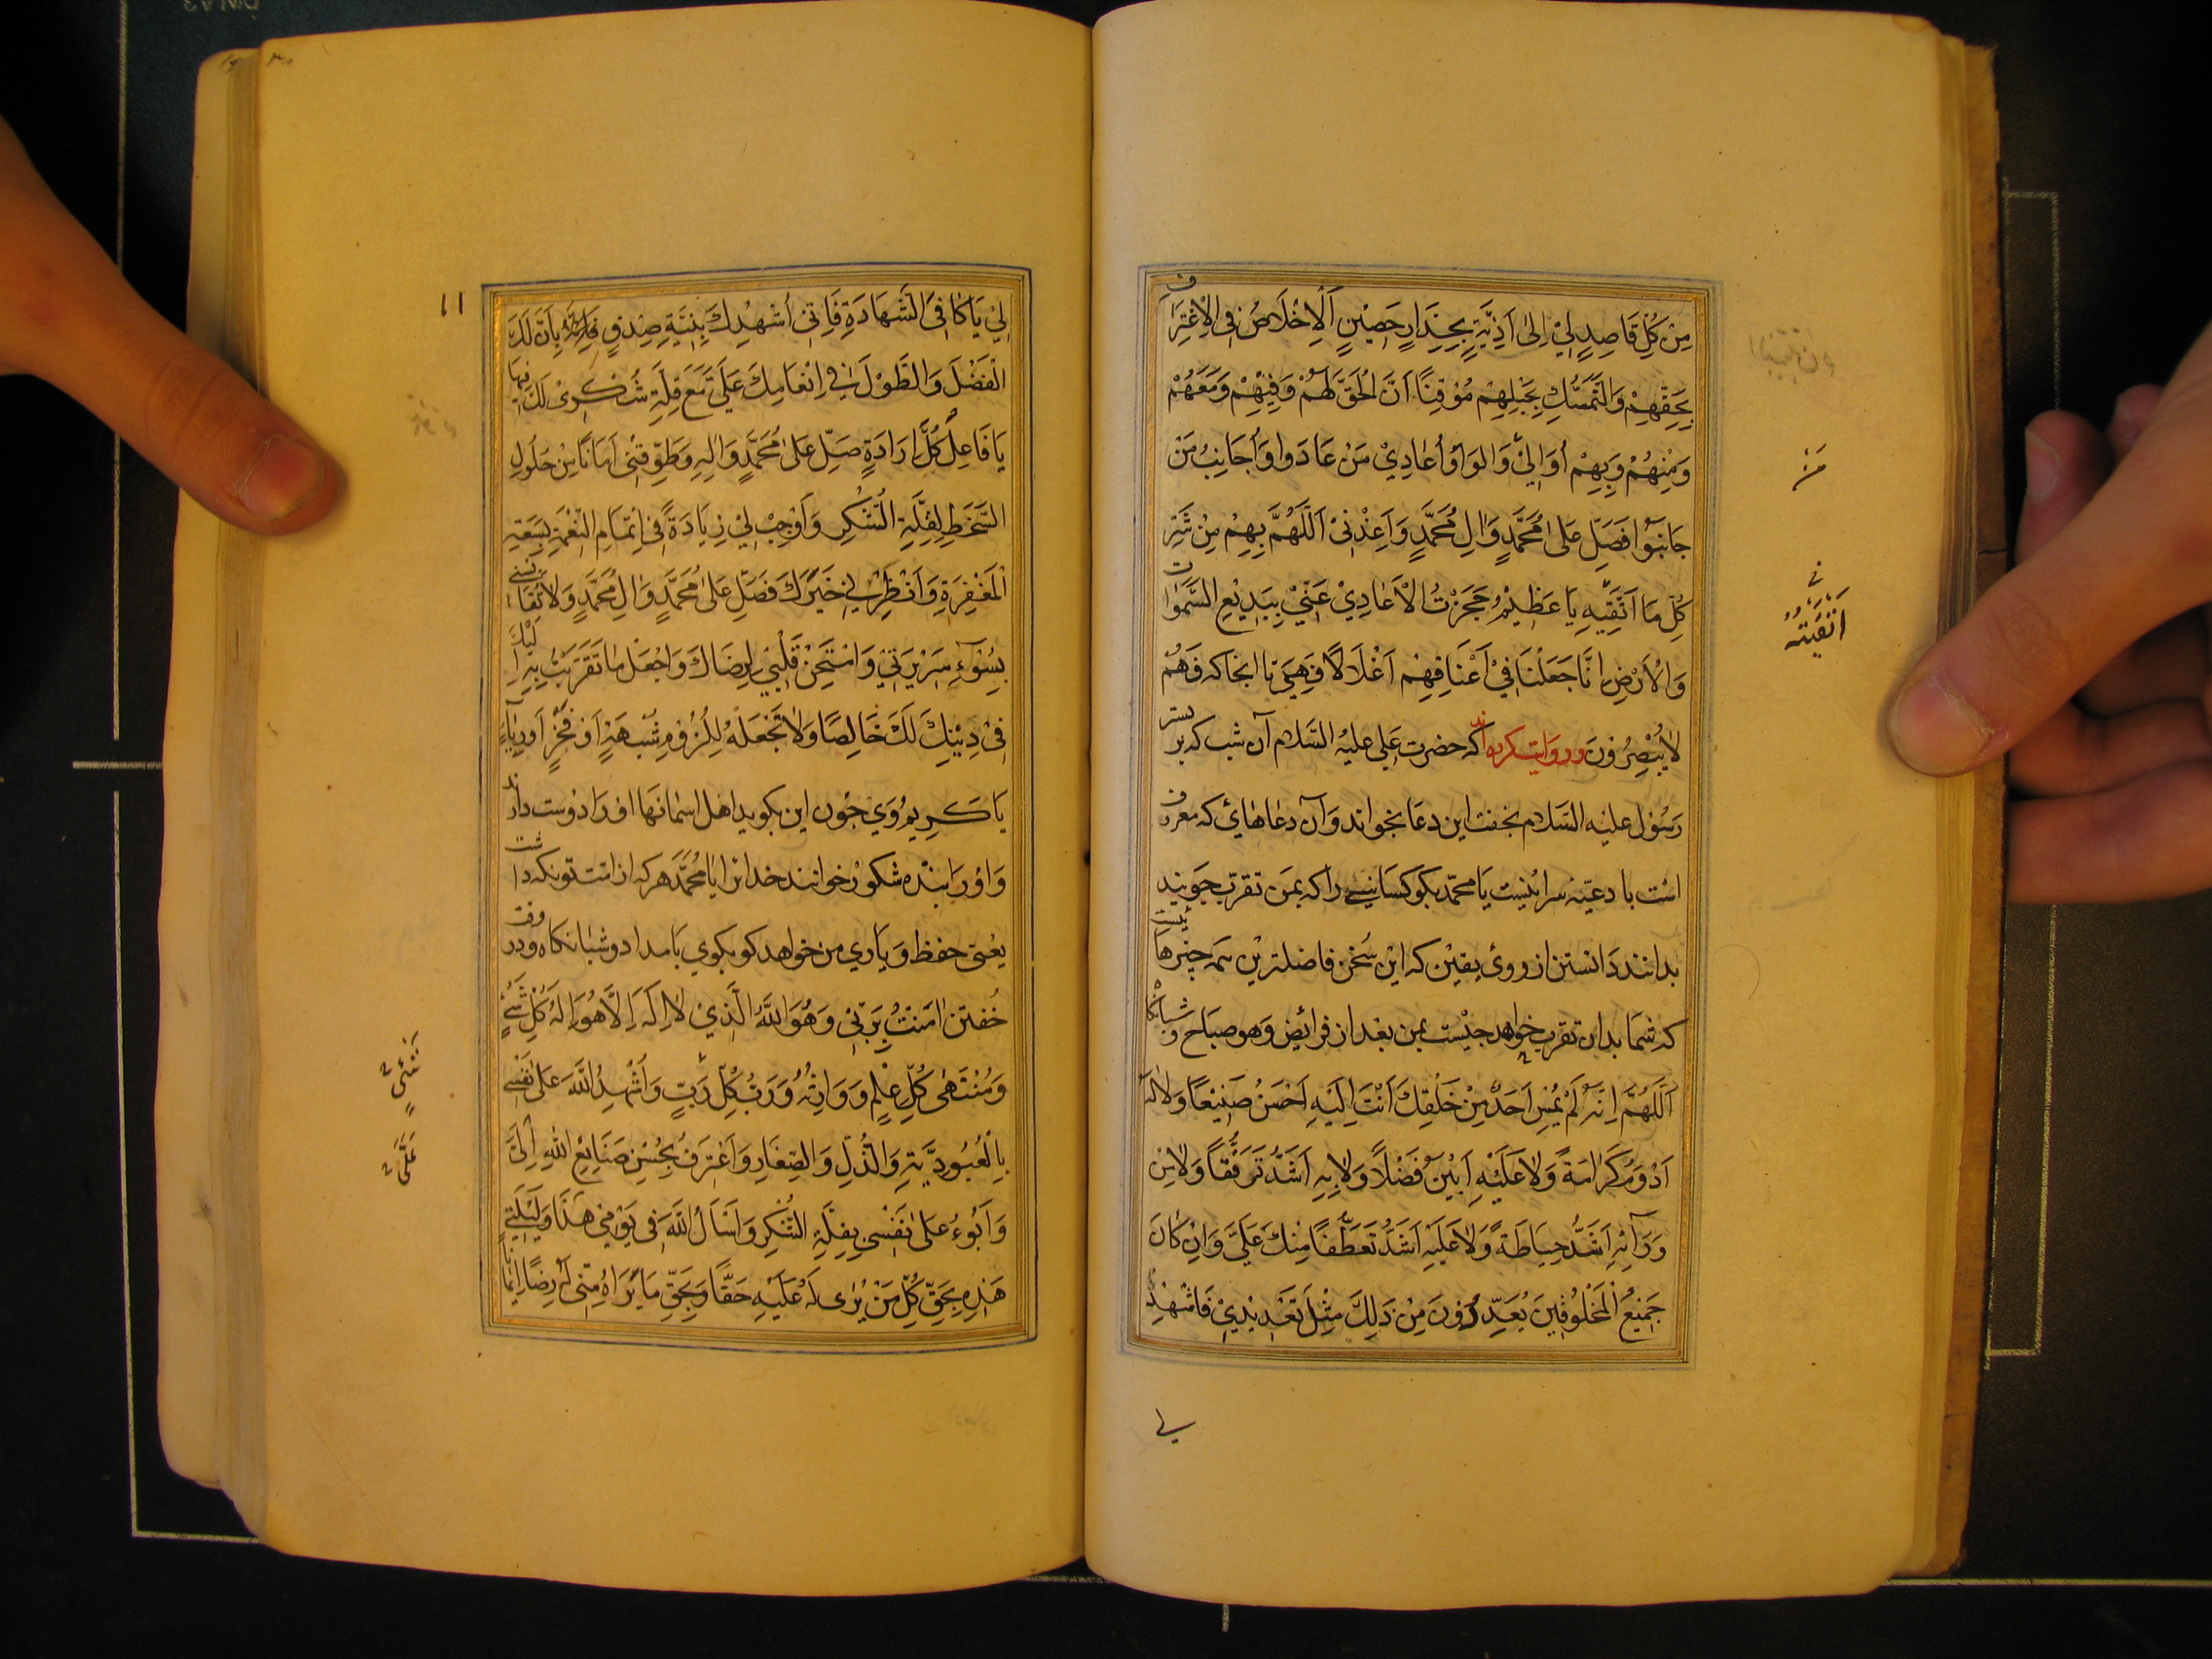 مِنْ كُلِّ قَاصِدٍ لِيْ اِلىٰ اَذِيَّةٍ بِجِدَارٍ حَصِيْنٍ اَلْاِخْلَاصُ فِى الْاِعْتِرَاف
بِحَقِّهِمْ وَالتَّمَسُّكِ بِحَبْلِهِمْ مُوْقِنًا اَنَّ الْحَقَّ لَهُمْ وَفِيْهِمْ وَمَعَهُمْ
وَمِنْهُمْ وَبِهِمْ اُوَالِيْ مَنْ وَالَوْا وَاُعَادِيْ مَنْ عَادَوا وَاُجَانِبُ مَنْ
جَانَبُوْا فَصَلِّ عَلىٰ مُحَمَّدٍ وَاٰلِ مُحَمَّدٍ وَاَعِذْنِىْ اَللّٰهُمَّ بِهِمْ مِنْ شَرِّ
كُلِّ مَا اَتَّقِيْهِ يَا عَظِيْمُ حَجَزْتُ الْاَعَادِيْ عَنِّيْ بِبَدِيْعِ السَّمٰوَات
وَالْاَرْضِ اِنَّا جَعَلْنَا فِيْ اَعْنَاقِهِمْ اَغْلَالًا فَهِىَ تا انجا كه فَهُمْ
لَايُبْصِرُوْنَ ورَوايتكرده اند كه حضرت عَلِى عليهُ السَّلام آن شب كه بر بستر
رَسُوْل عليْه السَّلام بخفت اين دعَا بخواند وَآن دعَاهَائ كه معروف
است با دعيّه سراىٔنيست يَا محمّد بكو كسَانيى را كه بمن تقرب جَويند
بدانند دَانستن از روىٔ يقيْن كه ايْن سُخن فاضلتريْن همه چيْزهَا ئيست
كه شمَا بدان تقرب خواهد جيْست بمن بعْد از فرائض وَهو صبَاح وشبانكاه
اَللّٰهُمَّ اِنَّهُ لَمْ يُمْسِ اَحَدٌ مِنْ خَلْقِكَ اَنْتَ اِلَيْهِ اَحْسَنُ صَنِيْعًا وَلَا لَهُ
اَدْوَمُ كَرَامَةً وَلَا عَلَيْهِ اَبْيَنُ فَضْلًا وَلَا بِهِ اَشَدُّ تَرَفُّقًا وَلَا مِنْ
وَرَائِهِ اَشَدُّ حِيَاطَةً وَلَا عَلَيْهِ اَشَدُّ تَعَطُّفًا مِنْكَ عَلَيَّ وَاِنْ كَانَ
جَمِيْعُ الْمَخْلُوْقِيْنَ يُعَدِّدُوْنَ مِنْ ذَلِكَ مِثْلَ تَعْدِيْدِيْ فَاشْهَدْ
لي
مَنْ
اَتَّقَيْتُهُ
١١
لِيْ يَا كَافِىَ الشَّهَادَةِ فَاِنِّىْ اُشْهِدُكَ بِنِيَّةِ صِدْقٍ بِاَنَّ لَكَ
الْفَضْلَ وَالطَّوْلَ فِىْ اِنْعَامِكَ عَلَيَّ مَعَ قِلَّةِ شُكْرِىْ لَكَ فِيْهَا
يَا فَاعِلَ كُلِّ اِرَادَةٍ صَلِّ عَلىٰ مُحَمَّدٍ وَاٰلِهِ وَطَوِّقْنِى اَمَانًا مِنْ حُلُوْلِ
السَّخَطِ لِقِلَّةِ الشُّكْرِ وَاَوْجِبْ لِيْ زِيَادَةً فِى اِتْمَامِ النِّعْمَةِ بِسَعَةِ
الْمَغْفِرَةِ وَانْظِرْنِيْ خَيْرَكَ فَصَلِّ عَلىٰ مُحَمَّدٍ وَاٰلِ مُحَمَّدٍ وَلَا تُقَايِسْنِى
بِسُوْءِ سَرِيْرَتِيْ وَامْتَحِنْ قَلْبِيْ لِرِضَاكَ وَاجْعَلْ مَا تَقَرَّبْتُ بِهِ اِلَيْكَ
فِىْ دِيْنِكَ لَكَ خَالِصًا وَلَا تَجْعَلْهُ لِلُزُوْمِ شُبْهَةٍ اَوْ فَخْرٍ اَوْرِيَاءٍ
يَا كَرِيْمُ وَيَ چُون اين بكويد اهْل اسمٰانهَا اوْ رَا دوْست دارند
وَاوْ رَا بنْده شكوْر خوانند خداىْرا يا مُحَمَّد هركه از امّت تو نكه داشت
يعْنى حفظ وَ يَاري من خواهد كو بكوي بَامداد وشبانكاه ودر وقت
خُفتن اٰمَنْتُ بِرَبِّىْ وَهُوَ اللّٰهُ الَّذِيْ لَا اِلٰهَ اِلَّا هُوَ اِلٰهُ كُلِّ شَىْءٍ
وَمُنْتَهىٰ كُلِّ عِلْمٍ وَوَارِثُهُ وَرَبُّ كُلِّ رَبٍّ وَاُشْهِدُ اللّٰهَ عَلىٰ نَفْسِى
بِالْعُبُوْدِيَّةِ وَالذُّلِّ وَالصِّغَارِ وَاَعْتَرِفُ بِحُسْنِ صَنَائِعِ اللّٰهِ اِلَيَّ
وَاَبُوْءُ عَلىٰ نَفْسِىْ بِقِلَّةِ الشُّكْرِ وَاَسْاَلُ اللّٰهَ فِى يَوْمِىْ هٰذَا وَلَيْلَتِى
هٰذِهِ بِحَقِّ كُلِّ مَنْ يُرٰى لَهُ عَلَيْهِ حَقًّا وَبِحَقِّ مَا يَرَاهُ مِنِّى لَهُ رِضًا اِيْمَانًا
عَلَيَّ